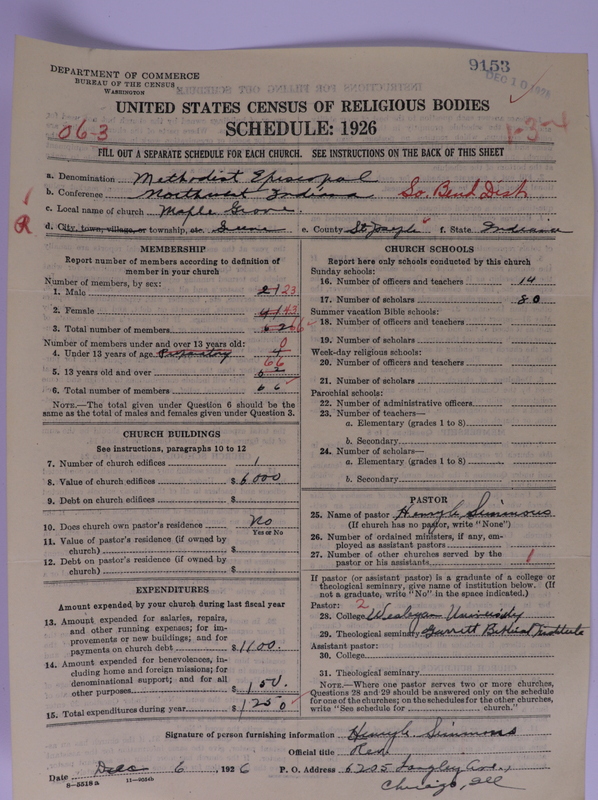 9153
DEC 10 192
DEPARTMENT OF COMMERCE
BUREAU OF THE CENSUS
WASHINGTON
UNITED STATES CENSUS OF RELIGIOUS BODIES
06-3
SCHEDULE: 1926
FILL OUT A SEPARATE SCHEDULE FOR EACH CHURCH. SEE INSTRUCTIONS ON THE BACK OF THIS SHEET
a. Denomination Methodist Episcopal
b. Conference Northwest Indiana So. Bend Dist
c. Local name of church Maple Grove.
R d. City, town, village, or township, etc. e. County St Joseph f. State Indiana
MEMBERSHIP
Report number of members according to definition of
member in your church
Number of members, by sex:
1. Male 21 23
2. Female 41 43
3. Total number of members 62 66
Number of members under and over 13 years old:
4. Under 13 years of age Preparatory 4 0
5. 13 years old and over 62 66
6. Total number of members 66
NOTE.—The total given under Question 6 should be the
same as the total of males and females given under Question 3.
CHURCH BUILDINGS
See instructions, paragraphs 10 to 12
7. Number of church edifices 1
8. Value of church edifices $6000
9. Debt on church edifices $
10. Does church own pastor's residence No
Yes or No
11. Value of pastor's residence (if owned by
church) $
12. Debt on pastor's residence (if owned by
church) $
EXPENDITURES
Amount expended by your church during last fiscal year
13. Amount expended for salaries, repairs,
and other running expenses; for im-
provements or new buildings; and for
payments on church debt $1100.
14. Amount expended for benevolences, in-
cluding home and foreign missions; for
denominational support; and for all
other purposes $150.
15. Total expenditures during year $1250
CHURCH SCHOOLS
Report here only schools conducted by this church
Sunday schools:
16. Number of officers and teachers 14
17. Number of scholars 80
Summer vacation Bible schools:
18. Number of officers and teachers
19. Number of scholars
Week-day religious schools:
20. Number of officers and teachers
21. Number of scholars
Parochial schools:
22. Number of administrative officers
23. Number of teachers—
a. Elementary (grades 1 to 8)
b. Secondary
24. Number of scholars—
a. Elementary (grades 1 to 8)
b. Secondary
PASTOR
25. Name of pastor Henry L Simmons
(If church has no pastor, write "None")
26. Number of ordained ministers, if any, em-
ployed as assistant pastors
27. Number of other churches served by the
pastor or his assistants 1
If pastor (or assistant pastor) is a graduate of a college or
theological seminary, give name of institution below. (If
not a graduate, write "No" in the space indicated.)
Pastor: 2
28. College Wesleyan University
29. Theological seminary Garrett Biblical Institute
Assistant pastor:
30. College
31. Theological seminary
NOTE.—Where one pastor serves two or more churches,
Questions 28 and 29 should be answered only on the schedule
for one of the churches; on the schedules for the other churches,
write "See schedule for church."
Signature of person furnishing information Henry L Simmons
Official title Rev.
Date Dec 6, 1926 P. O. Address 6205 Langley Ave.,
8-5518 a Chicago, Ill